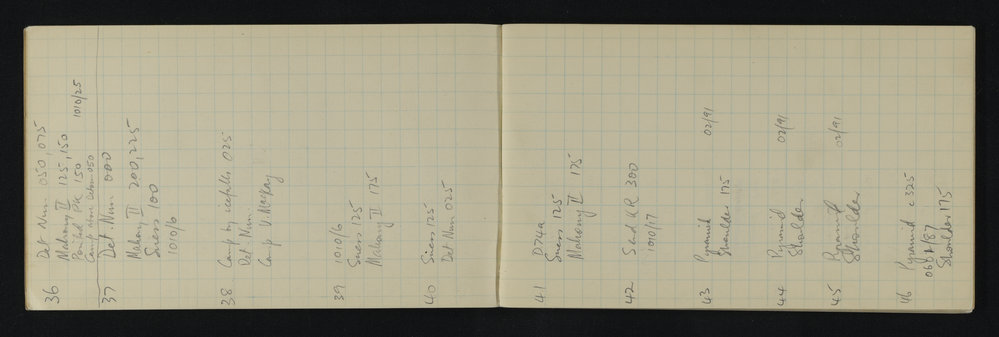 36 Det Nun 050, 075
Mahony II 125, 150
Painted PK 150 1010/25
Camp above Debon 050
37 Det. Nun 000
Mahony II 200, 225
Suess 100
1010/6
38 Camp by icefalls 025
Det. Nun
Camp V Mackay
39 1010/6
Suess 125
Mahony II 175
40 Suess 125
Det Nun 025
41 D74a
Suess 125
Mahony II 175
42 Sand KR 300
1010/17
43 Pyramid 02/91
Shoulder 175
44 Pyramid 02/91
Shoulder
45 Pyramid 02/91
Shoulder
46 Pyramid c 325
Shoulder 175